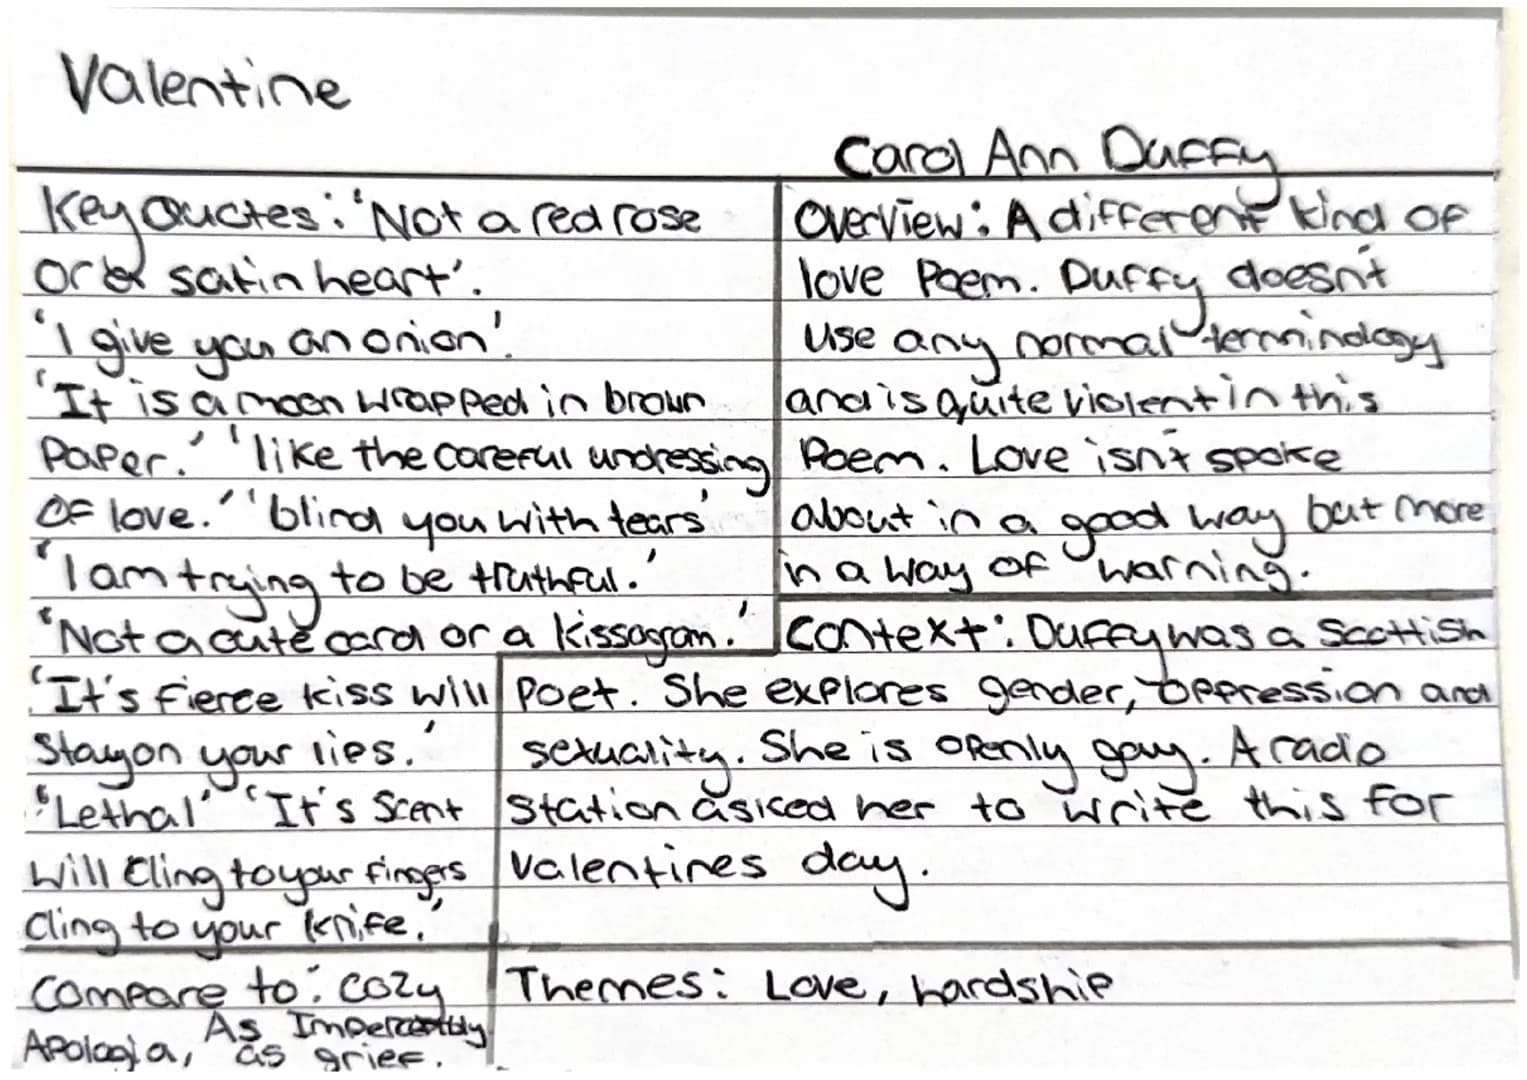 Valentine
Carol Ann Duffy
Key Quctes: 'Not a red rose
or a satin heart'.
'I give you an onion'.
'It is a moon wrapped in brown
Paper.' 'like the careful undressing
Of love.' 'blind you with tears'
'I am trying to be truthful.'
'Not a cute card or a kissogram.'
'It's fierce kiss will
Stay on your lips.'
'Lethal' 'It's Scent
will cling to your fingers
Cling to your knife.'
Overview: A different kind of
love Poem. Duffy doesn't
use any normal terminology
and is quite violent in this
Poem. Love isn't spoke
about in a good way but more
in a way of warning.
Context: Duffy was a Scottish
Poet. She explores gender, oppression and
sexuality. She is openly gay. A rado
Station asked her to write this for
Valentines day.
Compare to: Cozy
Apologia, As Imperceptibly
as grief.
Themes: Love, hardship